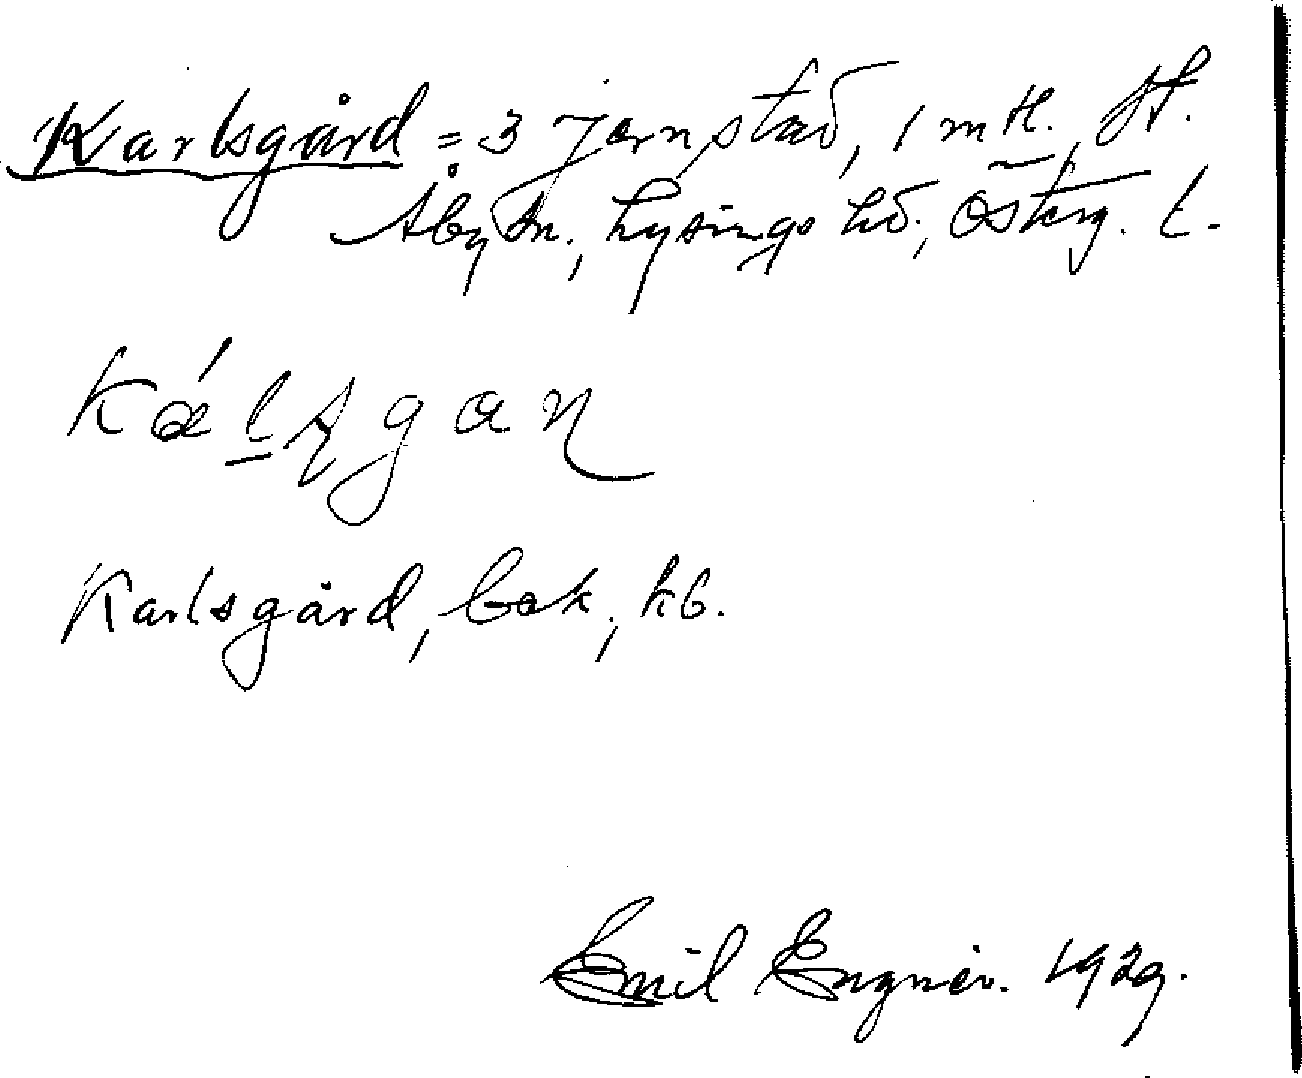 Karlsgård = 3 Jernstad, 1 mtl. St.
Åby sn., Lysings hd., Österg. l.
Kál̠ʂgan
Karlsgård, bok, kb.
Emil Engnér. 1929.